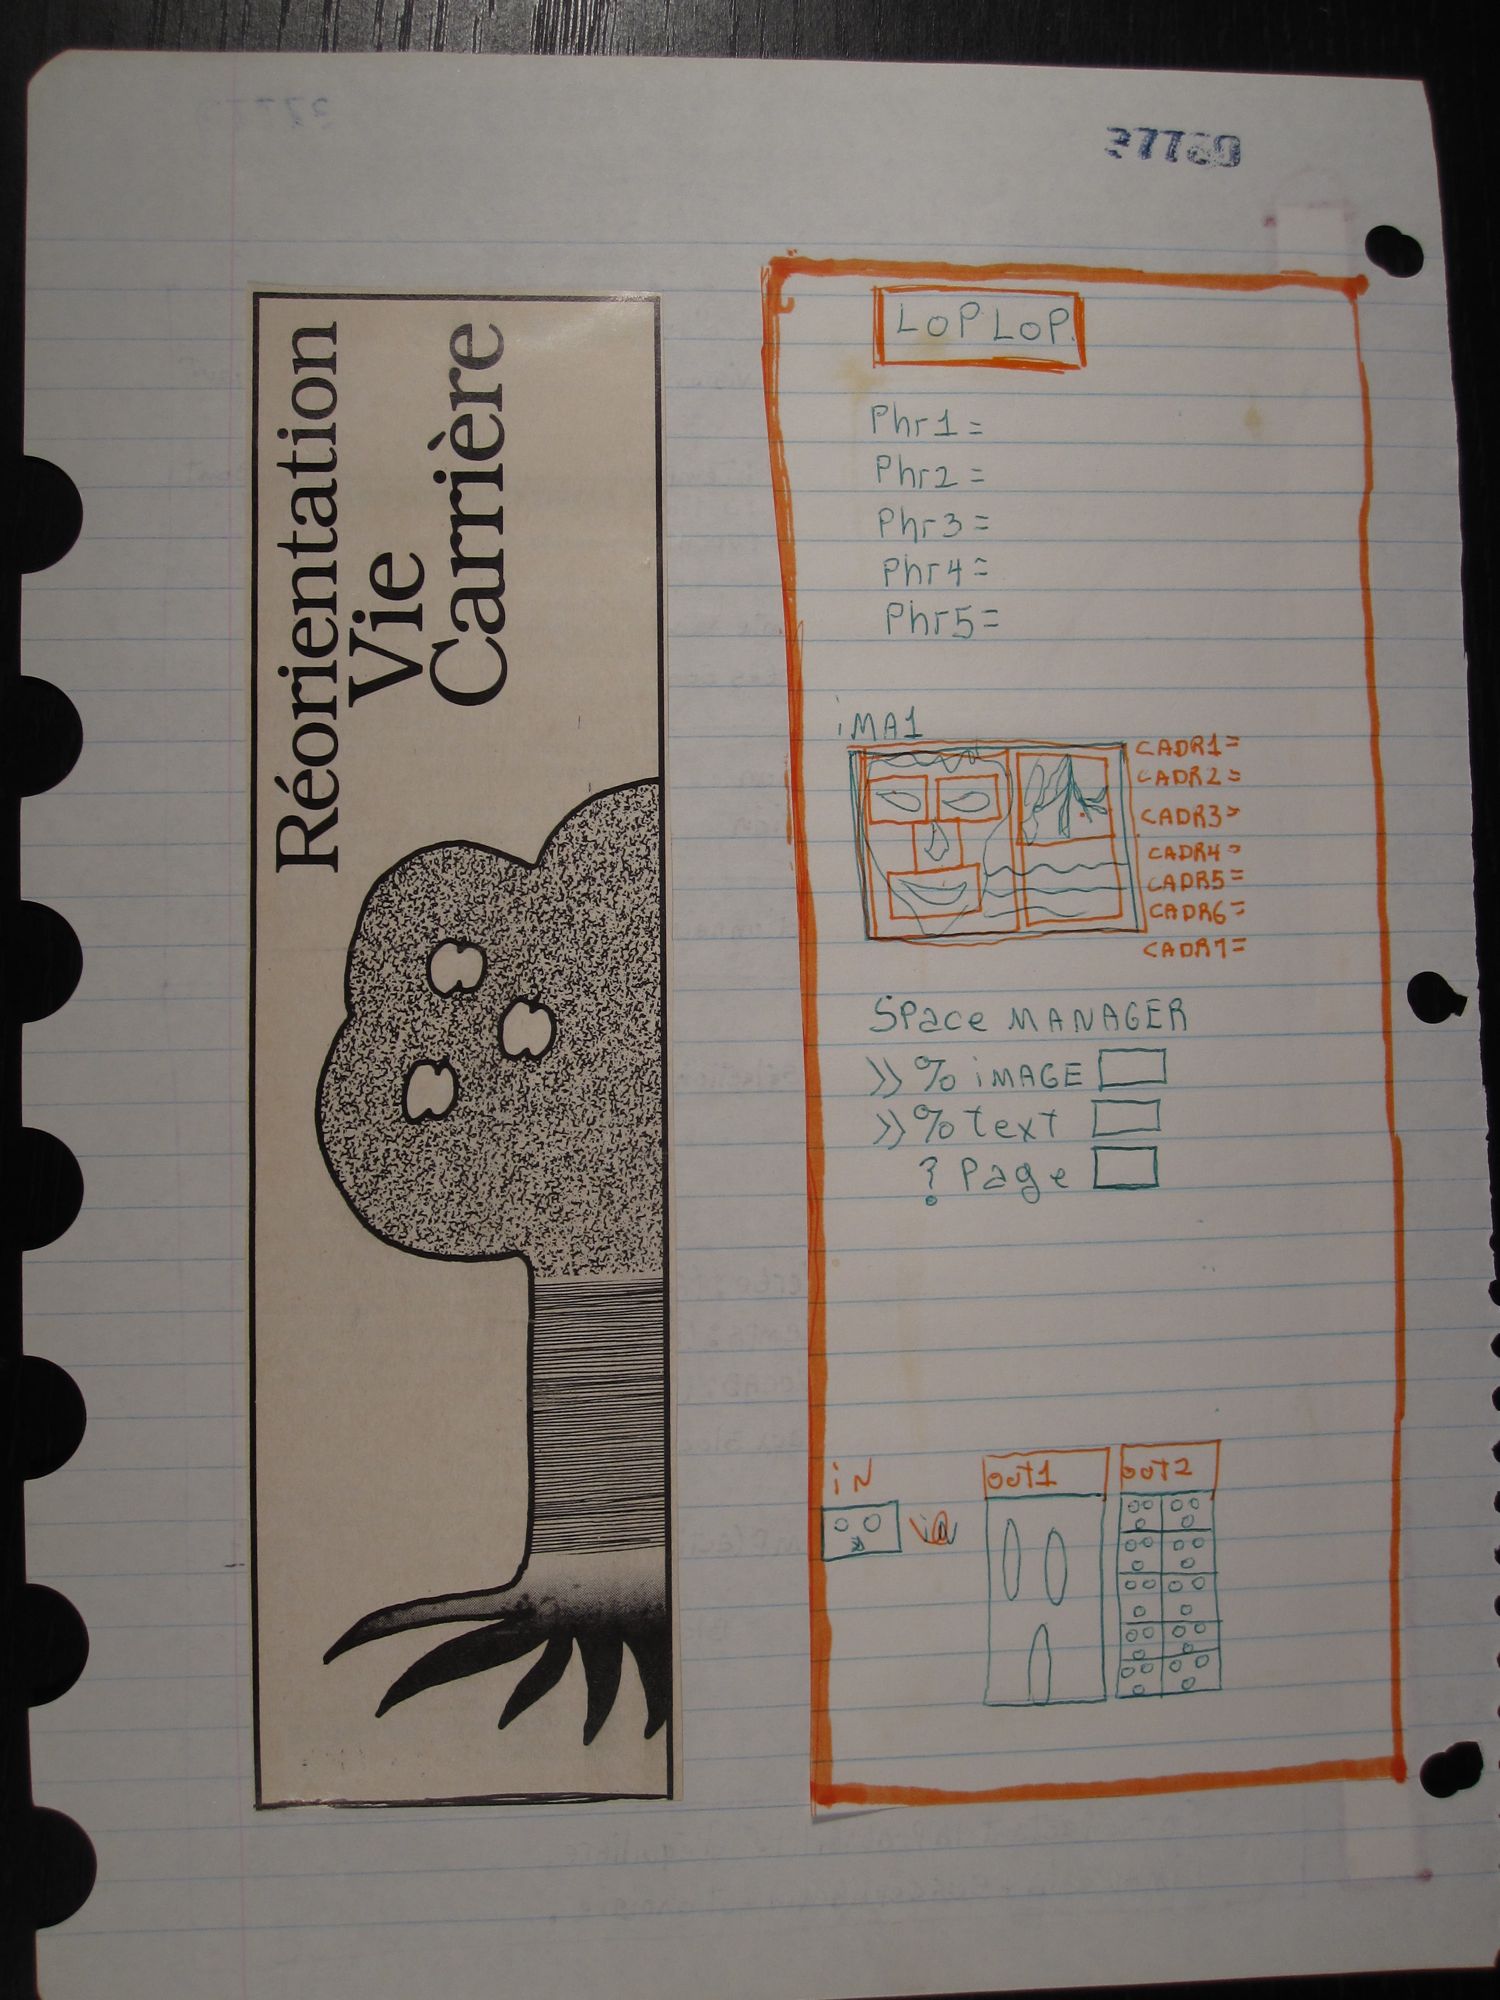 37769
Réorientation
Vie
Carrière
LOPLOP
Phr1=
Phr2=
Phr3=
Phr4=
Phr5=
iMA1
CADR1=
CADR2=
CADR3=
CADR4=
CADR5=
CADR6=
CADR7=
SPace MANAGER
>> % iMAGE
>> % text
? Page
iN
out1
out2